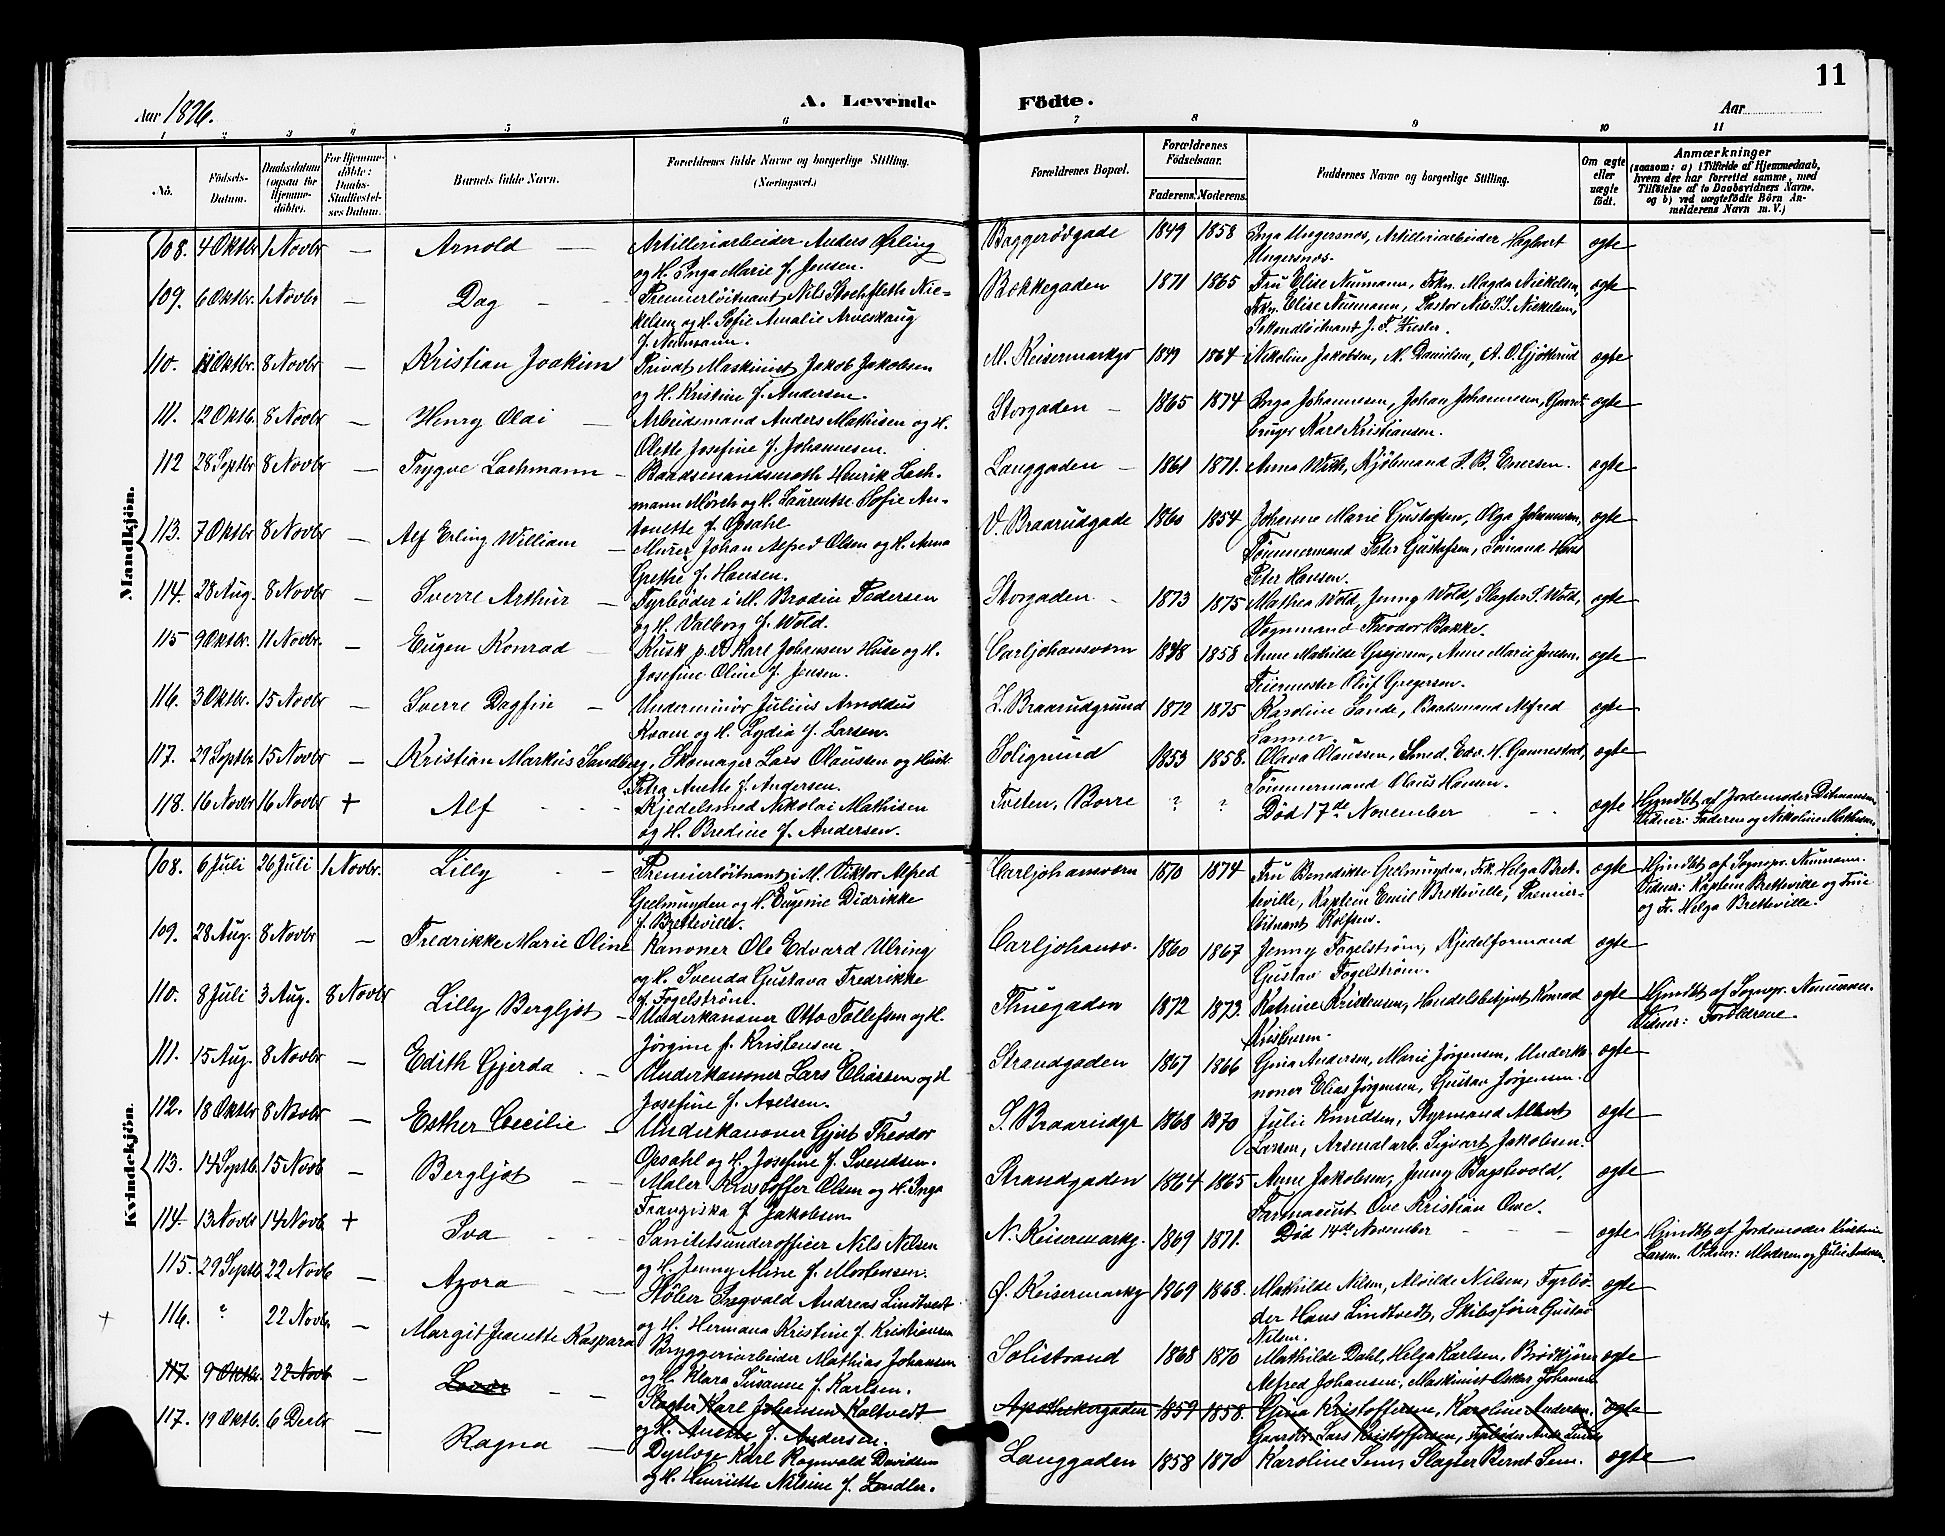 11
Aar 1896.
A. Levende Födte.
Aar
1 2 3 4 5 6 7 8 9 10 11
No.
Födsels-Datum.
Daabsdatum (ogsaa for Hjemme-döbte).
For Hjemme-döbte: Daabs-Stadfæstel-ses Datum.
Barnets fulde Navn.
Forældrenes fulde Navne og borgerlige Stilling. (Næringsvei.)
Forældrenes Bopæl.
Forældrenes Födselsaar.
Faderens. Moderens.
Faddernes Navne og borgerlige Stilling.
Om ægte eller uægte födt.
Anmærkninger (saasom: a) i Tilfælde af Hjemmedaab, hvem der har forrettet samme, med Tilföielse af to Daabsvidners Navne, og b) ved uægtefödte Börn An-melderens Navn m. V.)
Mandkjön.
108. 4 Oktbr. 1 Novbr — Arnold — Artilleriarbeider Anders Örling og H. Inga Marie f. Jensen. Baggerödgade 1849 1858 Inga Ungersnes, Artilleriarbeider Hagbart Ungersnes. ægte
109. 6 Oktbr. 1 Novbr — Dag — Premierlöitnant Nils Stockfleth Nickelsen og H. Sofie Amalie Arveskaug f. Neumann. Bakkegaden 1871 1865 Fru Elise Neumann, Frkn. Magda Nickelsen, Frkn. Elise Neumann, Pastor Nils P. S. Nickelsen, Sekondlöitnant J. F. Ziesler. ægte
110. 11 Oktbr. 8 Novbr — Kristian Joakim Privat Maskinist Jakob Jakobsen og H. Kristine f. Andersen. M. Keisermarkgd 1849 1864 Nikoline Jakobsen, N. Danielsen, A. O. Gjökerud ægte
111. 12 Oktb. 8 Novbr — Henry Oldi — Arbeidsmand Anders Mathisen og H. Olette Josefine f. Johannesen. Storgaden — 1865 1874 Inga Johannesen, Johan Johannesen, Gaardbruger Karl Kristiansen. ægte
112 28 Septbr 8 Novbr — Trygve Lachmann — Baadsmandsmath Henrik Lachmann Mörch og H. Laurentse Sofie Antonette f. Opsahl Langgaden — 1861 1871. Anna Witth, Kjöbmand S. B. Enersen. ægte
113. 7 Oktbr 8 Novbr — Alf Erling William — Murer Johan Alfred Olsen og H. Anna Grethe f. Hansen. V. Braarudgade 1860 1854 Johanne Marie Gustafsen, Olga Johannesen, Tömmermand Peter Gustafsen, Sömand Hans Peter Hansen. ægte
114. 28 Aug. 8 Novbr — Sverre Arthur — Fyrböder i M. Brodin Pedersen og H. Valborg f. Wold. Storgaden — 1873 1875 Mathea Wold, Jenny Wold, Slagter S. Wold, Vognmand Theodor Bakke. ægte
115 9 Oktbr. 11 Novbr. — Eugen Konrad — Kusk p.v. Karl Johansen Huse og H. Josefine Oline f. Jensen. Carljohansværn 1848 1858 Anne Mathilde Gregersen, Anne Marie Jensen. Feiermester Oluf Gregersen. ægte
116. 3 Oktbr. 15 Novbr — Sverre Dagfin — Underminör Julius Arnoldus Kvam og H. Lydia f. Larsen. L. Braarudgrund 1872 1875 Karoline Sande, Baadsmand Alfred Sanner. ægte
117. 29 Septbr 15 Novbr — Kristian Markus Sandberg, Skomager Lars Olaussen og Hust. Petra Anette f. Andersen. Soligrund 1853 1858. Olava Olaussen, Smed. Edv. H. Gannestad, Tömmermand Olaus Hansen. ægte
118. 16 Novbr 16 Novbr + Alf — Kjedelsmed Nikolai Mathisen og H. Bredine f. Andersen. Tveten, Borre ? ? Död 17de November ægte Hjmdbt af Jordemoder Ditmansen. Vidner: Faderen og Nikoline Mathisen.
Kvindekjön.
108. 6 Juli 26 Juli 1 Novbr. Lilly — Premierlöitnant i M. Viktor Alfred Geelmuyden og H. Eugenie Didrikke f. Bretteville. Carljohansværn 1870 1874 Fru Benedikte Geelmuyden, Frk. Helga Bretteville, Kaptein Emil Bretteville, Premierlöitnant Rolfsen. ægte Hjmdbt af Sognepr. Neumann. Vidner: Kaptein Bretteville og Frue og Fr. Helga Bretteville.
109. 28 Aug. 8 Novbr — Fredrikke Marie Oline Kanoner Ole Edvard Ulring og H. Svenda Gustava Fredrikke f. Fogelström. Carljohansv. 1860 1867 Jenny Fogelström, Kjedelformand Gustav Fogelström. ægte
110. 8 Juli 3 Aug. 8 Novbr Lilly Bergljot — Underkanoner Otto Tollefsen og H. Jörgine f. Kristensen. Thuegaden 1872 1873. Katrine Kristensen, Handelsbetjent Konrad Kristensen. ægte Hjmdbt af Sognepr. Neumann. Vidner: Forældrene.
111. 15 Aug. 8 Novbr — Edith Gjerda — Underkanoner Lars Eliassen og H Josefine f. Axelsen. Strandgaden 1867 1866 Gina Andersen, Marie Jörgensen, Underkanoner Elias Jörgensen, Gustav Jörgensen. ægte
112. 18 Oktbr 8 Novbr — Esther Cecilie — Underkanoner Gjert Theodor Opsahl og H. Josefine f. Svendsen. S. Braarudgr 1868 1870 Julie Knudsen, Styrmand Albert Larsen, Arsenalarb. Sigvart Jakobsen. ægte
113. 14 Septb. 15 Novb — Bergljot — Maler Kristoffer Olsen og H. Inga Franziska f. Jakobsen Strandgaden 1864 1865 Anne Jakobsen, Jenny Bagstevold, Farmaceut Ove Kristian Owe. ægte
114. 13 Novbr 14 Novb + Eva — Sanitetsunderofficer Nils Nilsen og H. Jenny Aline f. Mortensen. N. Keisermarkg. 1869 1871. Död 14de November ægte Hjmdbt af Jordemoder Kristine Larsen. Vidner: Moderen og Julie Andersen.
115. 29 Septb 22 Novb — Azora — Stöber Ingvald Andreas Lindtvedt og H. Hermana Kristine f. Kristiansen Ö. Keisermarkg 1869 1868. Mathilde Nilsen, Alvilde Nilsen, Fyrböder Hans Lindtvedt, Skibsförer Gustav Nilsen. ægte
116. ? 22 Novbr. — Margit Jeanette Kaspara Bryggeriarbeider Mathias Johansen og H. Klara Susanne f. Karlsen. Solistrand 1868 1870 Mathilde Dahl, Helga Karlsen, Brödkjörer Alfred Johansen, Maskinist Oskar Johansen ægte
117 9 Oktbr. 22 Novb — Slagter Karl Johansen Kaltvedt og H. Anette f. Andersen. Apothekergaden 1859 1858. Gina Kristoffersen, Karoline Andersen. Gaardbr. Lars Kristoffersen, Fyrböder Andr. Lunde ægte
117. 19 Oktbr. 6 Decbr — Ragna — Dyrlæge Karl Ragnvald Davidsen og H. Henriette Nilsine f. Zondler. Langgaden 1858 1870 Karoline Sem, Slagter Bernt Sem. ægte